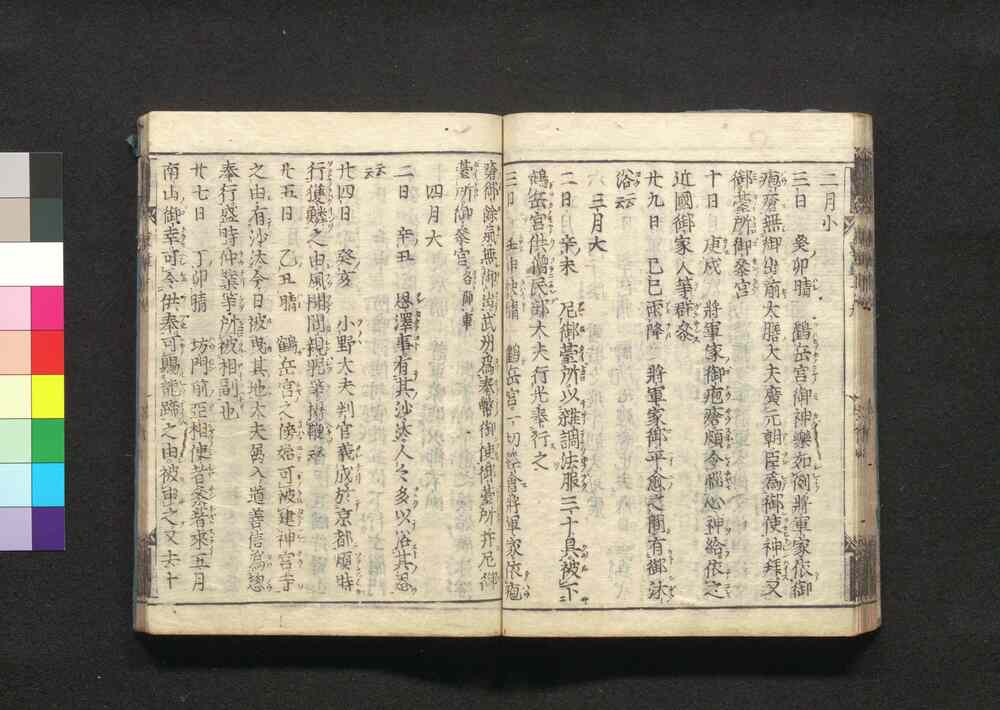 二月小
三日　癸卯晴　鶴岳宮御神樂如例將軍家依御
疱瘡無御出前大膳大夫廣元朝臣為御使神拜又
御臺所御參宮
十日　庚戌　將軍家御疱瘡頗令惱心神給依之
近國御家人等群參
廿九日　己巳雨降　將軍家御平愈之間有御沐
浴云云
三月大
二日　辛未　尼御臺所以雜調法服三十具被下
鶴岳宮供僧民部大夫行光奉行之
三日　壬申快晴　鶴岳宮一切經會將軍家依疱
瘡御餘氣無御出武州為奉幣御使御臺所并尼御
臺所御參宮各御車
四月大
二日　辛丑　恩澤事有其沙汰人々多以浴其恩
云云
廿四日　癸亥　小野大夫判官義成於京都頓時
行雙之由風聞間親眤等
廿五日　乙丑晴　鶴岳宮之傍始可被建神宮寺
之由有沙汰今日被曳其地大夫属入道善信為惣
奉行惑時仲業等所被相副也
廿七日　丁卯晴　坊門前亞相使者參着來五月
南山御幸可令供奉可賜龍蹄之由被申之又去十